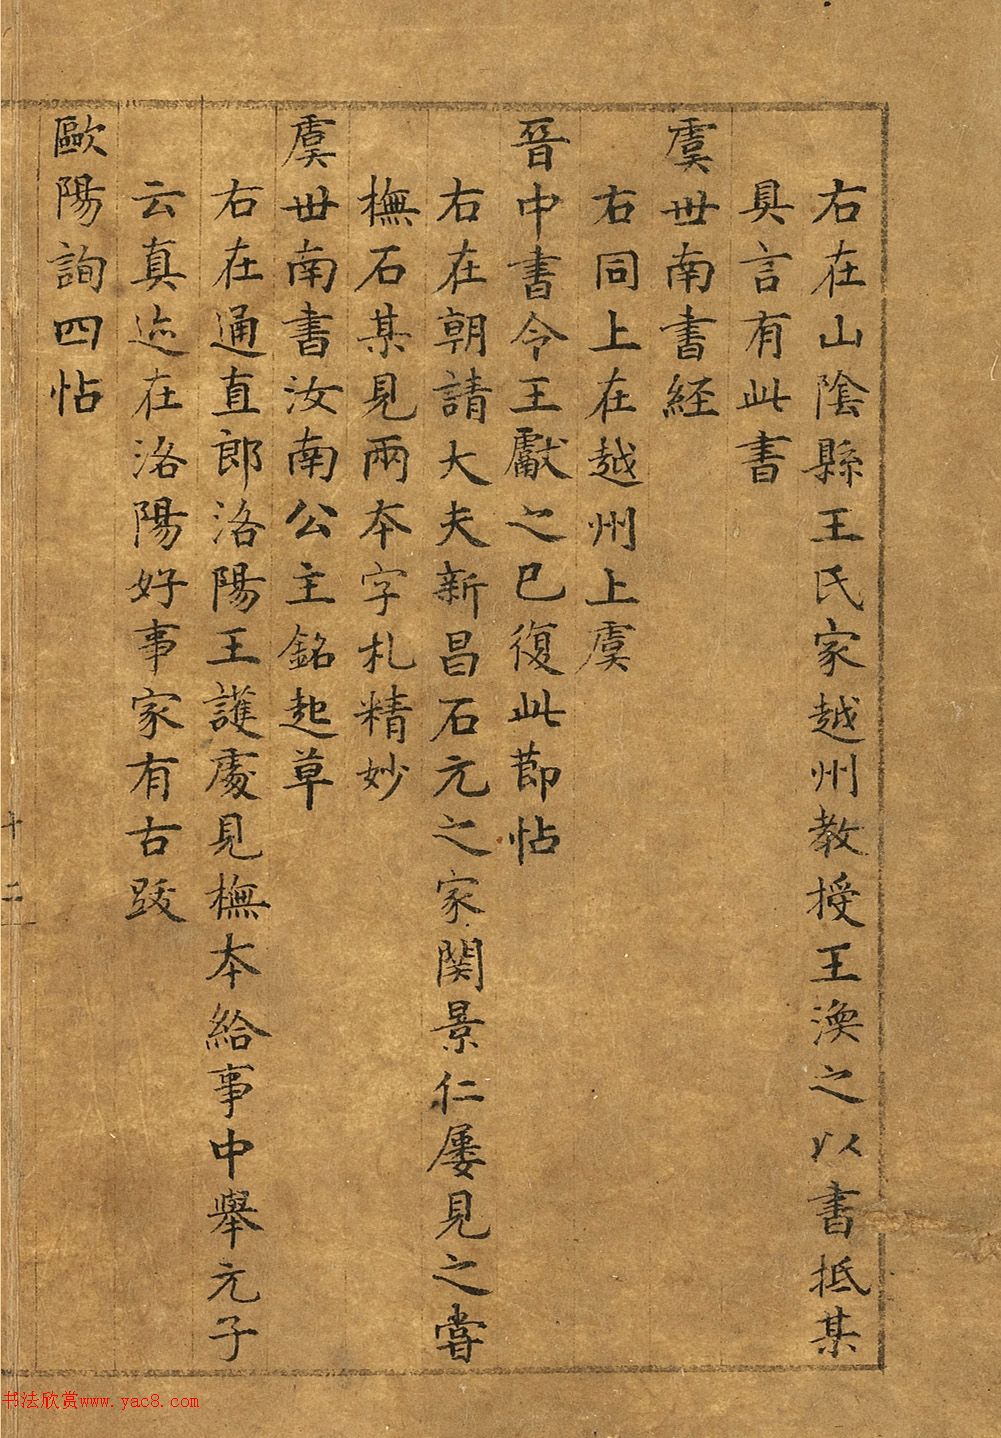 右在山陰縣王氏家越州教授王渙之以書抵某
具言有此書
虞世南書經
右同上在越州上虞
晉中書令王獻之已復此節帖
右在朝請大夫新昌石元之家関景仁屢見之嘗
橅石某見兩本字札精妙
虞世南書汝南公主銘起草
右在通直郎洛陽王護處見橅本給事中舉元子
云真迹在洛陽好事家有古跋
歐陽詢四帖
十二
书法欣赏www.yac8.com